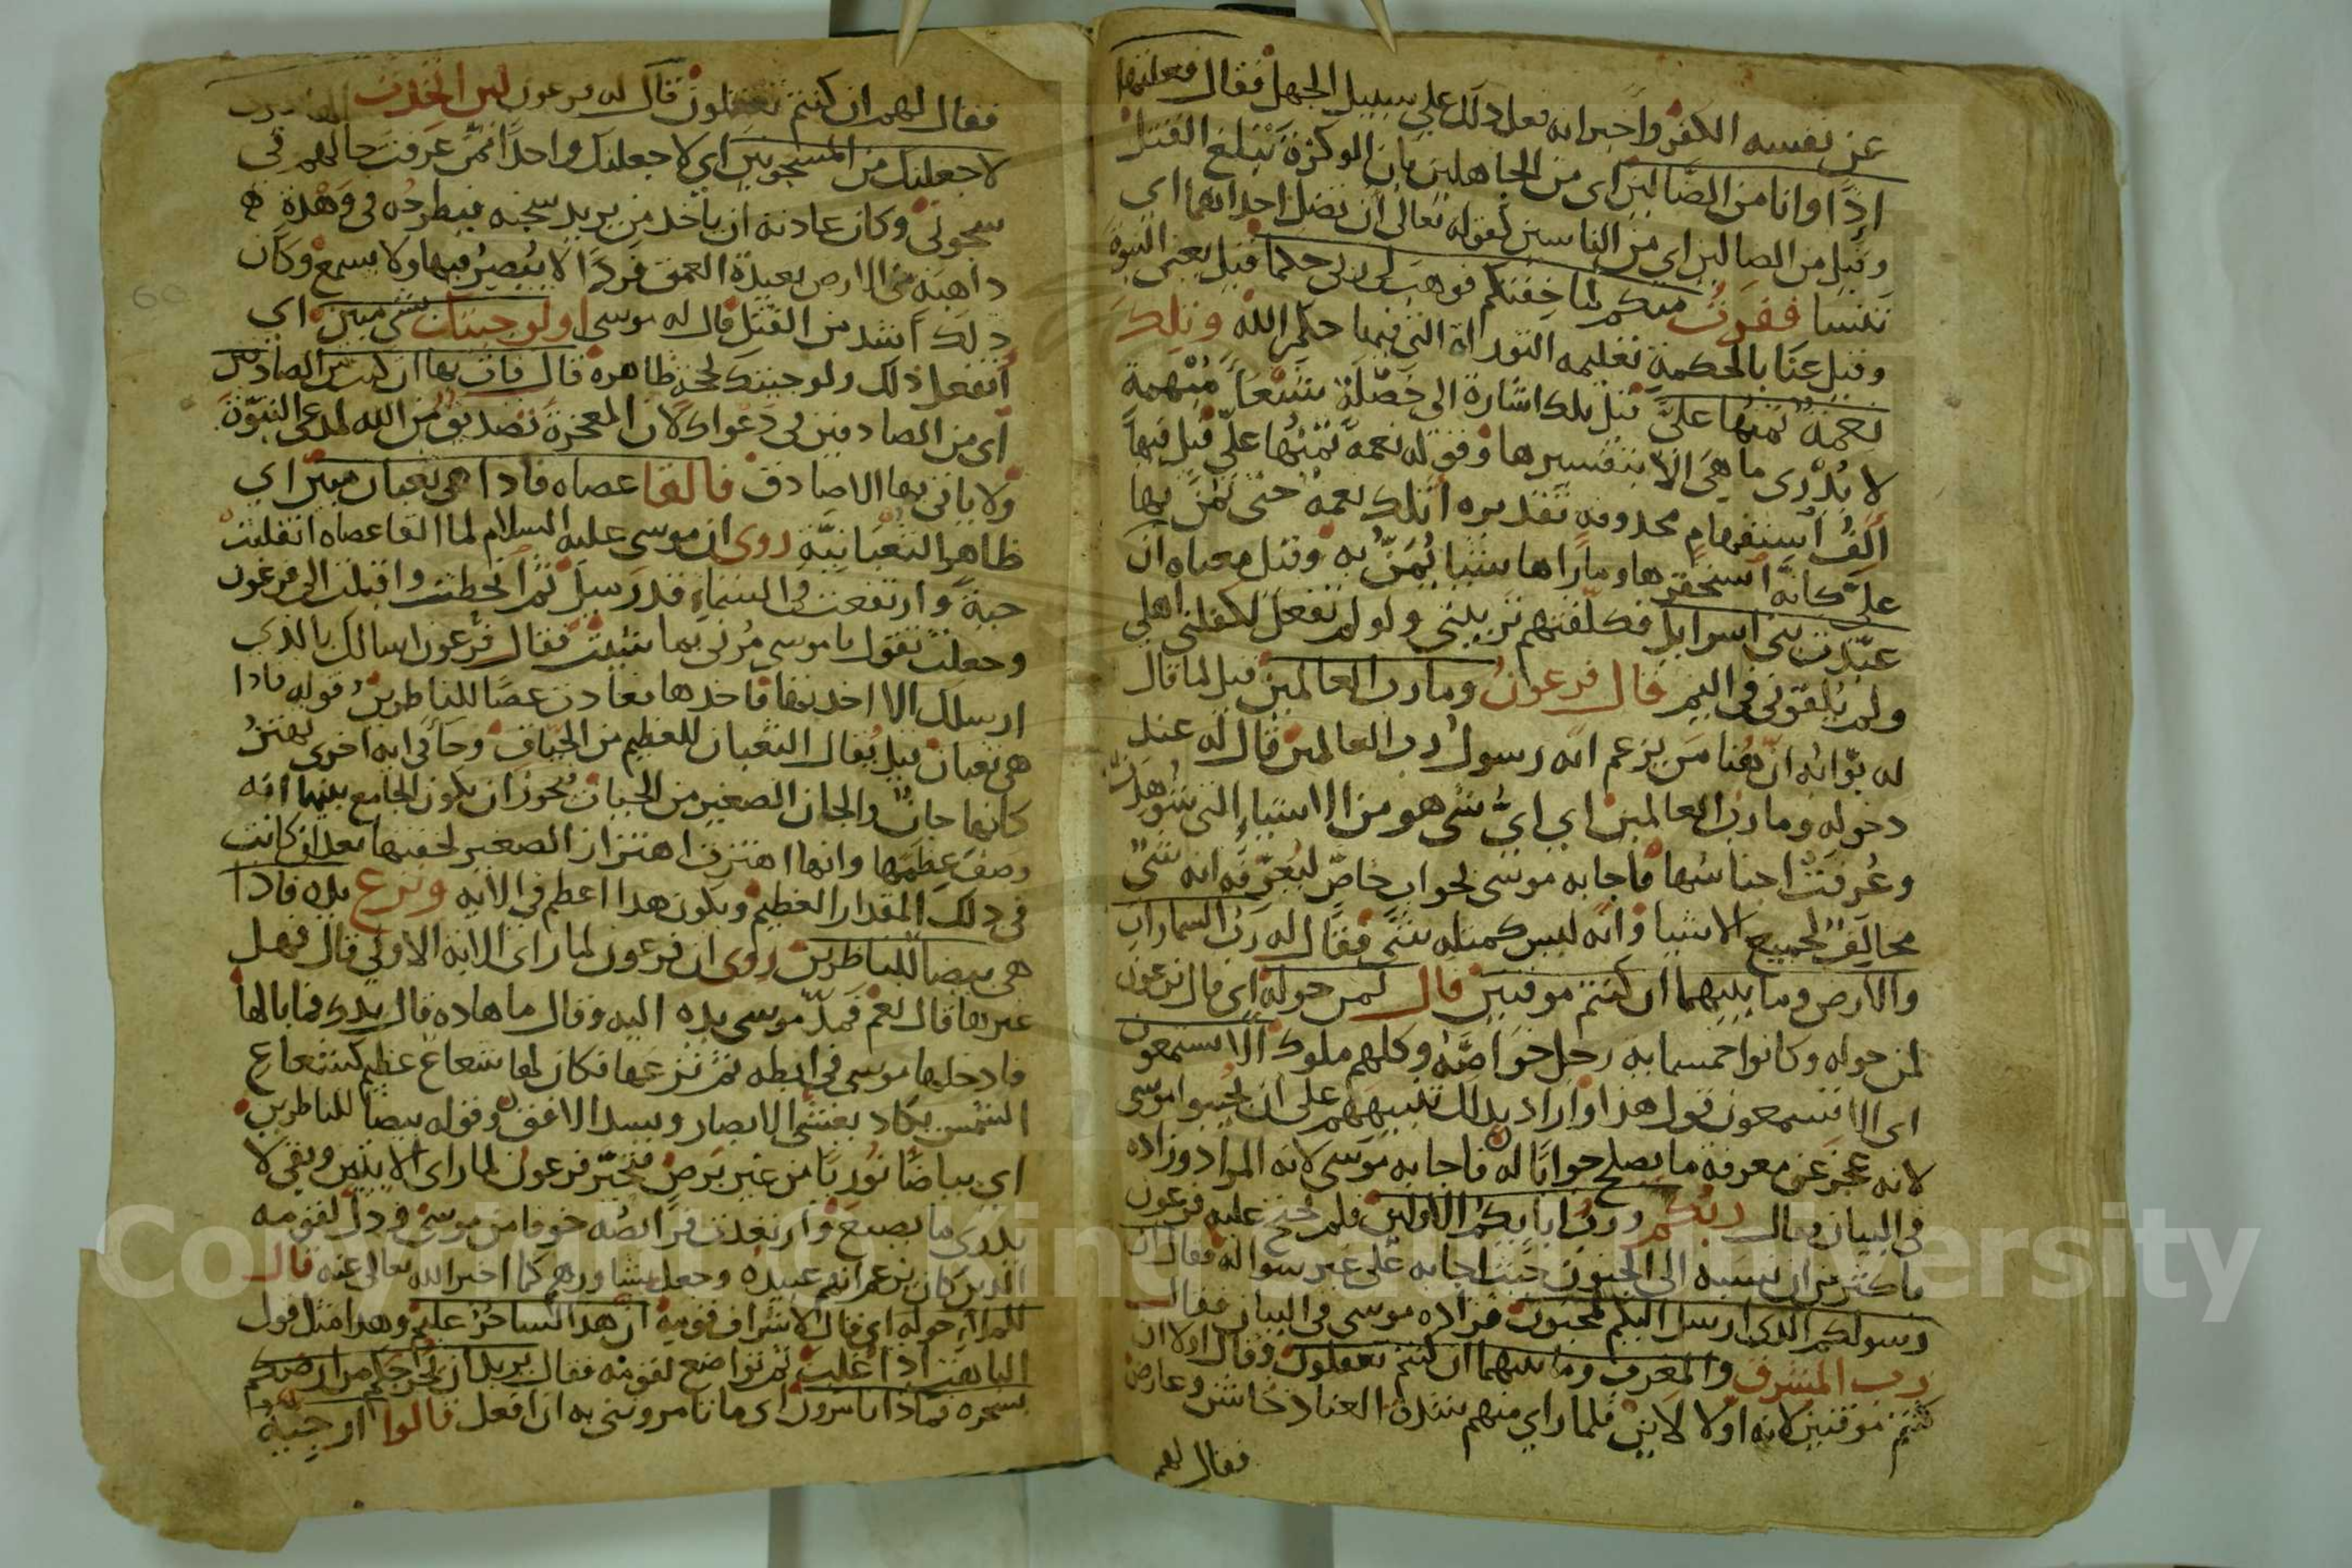 عن نفسه الكفر واخبر انه فعل ذلك على سبيل الجهل فقال فعلتها
اذًا وانا من الضالين اى من الجاهلين بان الوكزة تبلغ القتل
وقيل من الضالين اي من الناسين كقوله تعالى ان تضل احداهما اى
تنسا ففررت منكم لما خفتكم فوهب لى ربى حكما قيل يعنى النبوة
وقيل عنا بالحكمة تعليمه التوراة التى فيها حكم الله وتلك
نعمة تمنها علىّ قيل تلك اشارة الى خصلة شنعا مبهمة
لا يدرى ما هى الا بتفسيرها وقوله نعمة تمنها علىّ قيل فيها
الف استفهام محذوفه تقديره اتلك نعمة حتى تمن بها
علىّ كانه استحقرها وما راها شيا يمن به وقيل معناه ان
عبّدت بنى اسرايل فكلفتهم تربيتى ولو لم تفعل لكفلنى اهلى
ولم يلقونى فى اليم قال فرعون وما رب العالمين قيل لما قال
له بوابه ان هنا من يزعم انه رسول رب العالمين قال له عند
دخوله وما رب العالمين اى اىّ شى هو من الاشياء التى شوهدت
وعُرفت اجناسها فاجابه موسى بجواب خاص ليعرّفه انه شى
مخالف لجميع الاشيا وانه ليس كمثله شى فقال له رب السماوات
والارض وما بينهما ان كنتم موقنين قال لمن حوله اى قال فرعون
لمن حوله وكانوا خمسمايه رجل خواصه وكلهم ملوك الا تستمعون
اى الا تستمعون قول هذا واراد بذلك تنبيههم على ان يجيبوا موسى
لانه عجز عن معرفة ما يصلح جوابًا له فاجابه موسى لانه المراد وزاده
فى البيان فقال ربكم ورب ابايكم الاولين فلم يحتج عليه فرعون
باكثر من ان نسبه الى الجنون حيث اجابه على غير سواله فقال ان
رسولكم الذى ارسل اليكم لمجنون فزاده موسى فى البيان فقال
رب المشرق والمغرب وما بينهما ان كنتم تعقلون وقال اولا ان
كنتم موقنين لانه اولا لاين فلما راى منهم شدة العناد خاشن وعارض
فقال لهم
فقال لهم ان كنتم تعقلون قال له فرعون لين اتخذت
لاجعلنك من المسجونين اى لاجعلنك واحدًا ممن عرفت حالهم فى
سجونى وكان عادته ان ياخذ من يريد سجنه فيطرحه فى وهدة
ذاهبة فى الارض بعيدة العمق فردًا لا يُبصر فيها ولا يسمع وكان
ذلك اشد من القتل قال له موسى اولو جيتك بشى مبين اى
أتفعل ذلك ولو جيتك بحجة ظاهرة قال فات بها ان كنت من الصادقين
اى من الصادقين فى دعواك لان المعجزة تصديق من الله لمدعى النبوّة
ولا ياتى بها الا صادق فالقا عصاه فاذا هى ثعبان مبين اى
ظاهر الثعبانيّة روى ان موسى عليه السلام لما القا عصاه انقلبت
حية وارتفعت فى السماء قدر ميل ثم انحطت واقبلت الى فرعون
وجعلت تقول يا موسى مُرنى بما شيت فقال فرعون اسالك بالذى
ارسلك الا اخذتها فاخذها فعادت عصًا للناظرين قوله فاذا
هى ثعبان قيل يقال الثعبان للعظيم من الحيات وجا فى ايه اخرى تهتز
كانها جان والجان الصغير من الحيات يجوز ان يكون الجامع بينهما انه
وصف عظمها وانها اهتزت اهتزاز الصغير لخفتها بعد ان كانت
فى ذلك المقدار العظيم ويكون هذا اعظم فى الايه ونزع يده فاذا
هى بيضا للناظرين روى ان فرعون لما راى الايه الاولى قال فهل
غيرها قال نعم فمدّ موسى يده اليه وقال ما هاذه قال يدك فما بالها
فادخلها موسى فى ابطه ثم نزعها فكان لها شعاع عظيم كشعاع
الشمس يكاد يغشى الابصار ويسد الافق وقوله بيضا للناظرين
اى بياضًا نوريًا من غير برص فتحيّر فرعون لما راى الايتين وبقى لا
يدرى ما يصنع وارتعدت فرايصه خوفا من موسى وذل لقومه
الذين كان يزعم انهم عبيده وجعل يشاورهم كما اخبر الله تعالى عنه قال
للملاء حوله اى قال لاشراف قومه ان هذا لساحر عليم وهذا مثل قول
الباهت اذا غلب ثم تواضع لقومه فقال يريد ان يخرجكم من ارضكم
بسحره فماذا تامرون اى ما تامرونى به ان افعل قالوا ارجيه